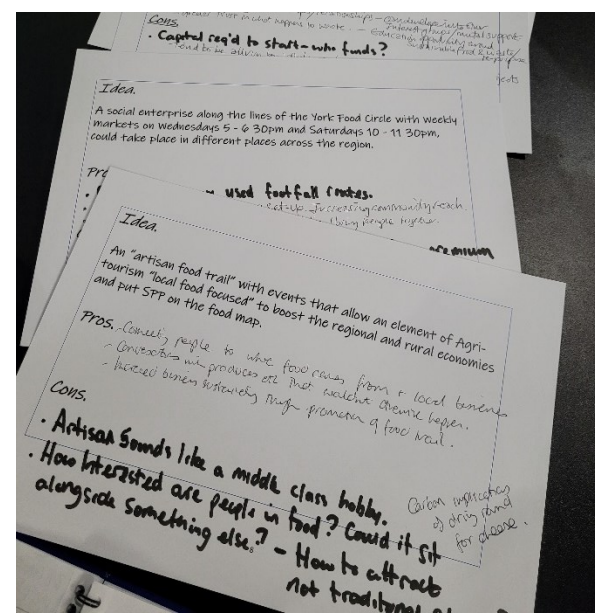 Cons.
• Capital req'd to start - who funds?
Idea.
A social enterprise along the lines of the York Food Circle with weekly
markets on Wednesdays 5 - 6 30pm and Saturdays 10 - 11 30pm,
could take place in different places across the region.
used footfall routes.
set-up increasing community reach
bring people together.
premium
Idea.
An "artisan food trail" with events that allow an element of Agri-
tourism "local food focused" to boost the regional and rural economies
and put SPP on the food map.
Pros. - Connecting people to where food comes from + local business
- Connections with produces etc that wouldn't otherwise happen.
- Increased business through promotion of food trail.
Cons.
• Artisan sounds like a middle class hobby.
• How interested are people in food? Could it sit
alongside something else? - How to attract
not traditional
Carbon implication
of driving round
for cheese.